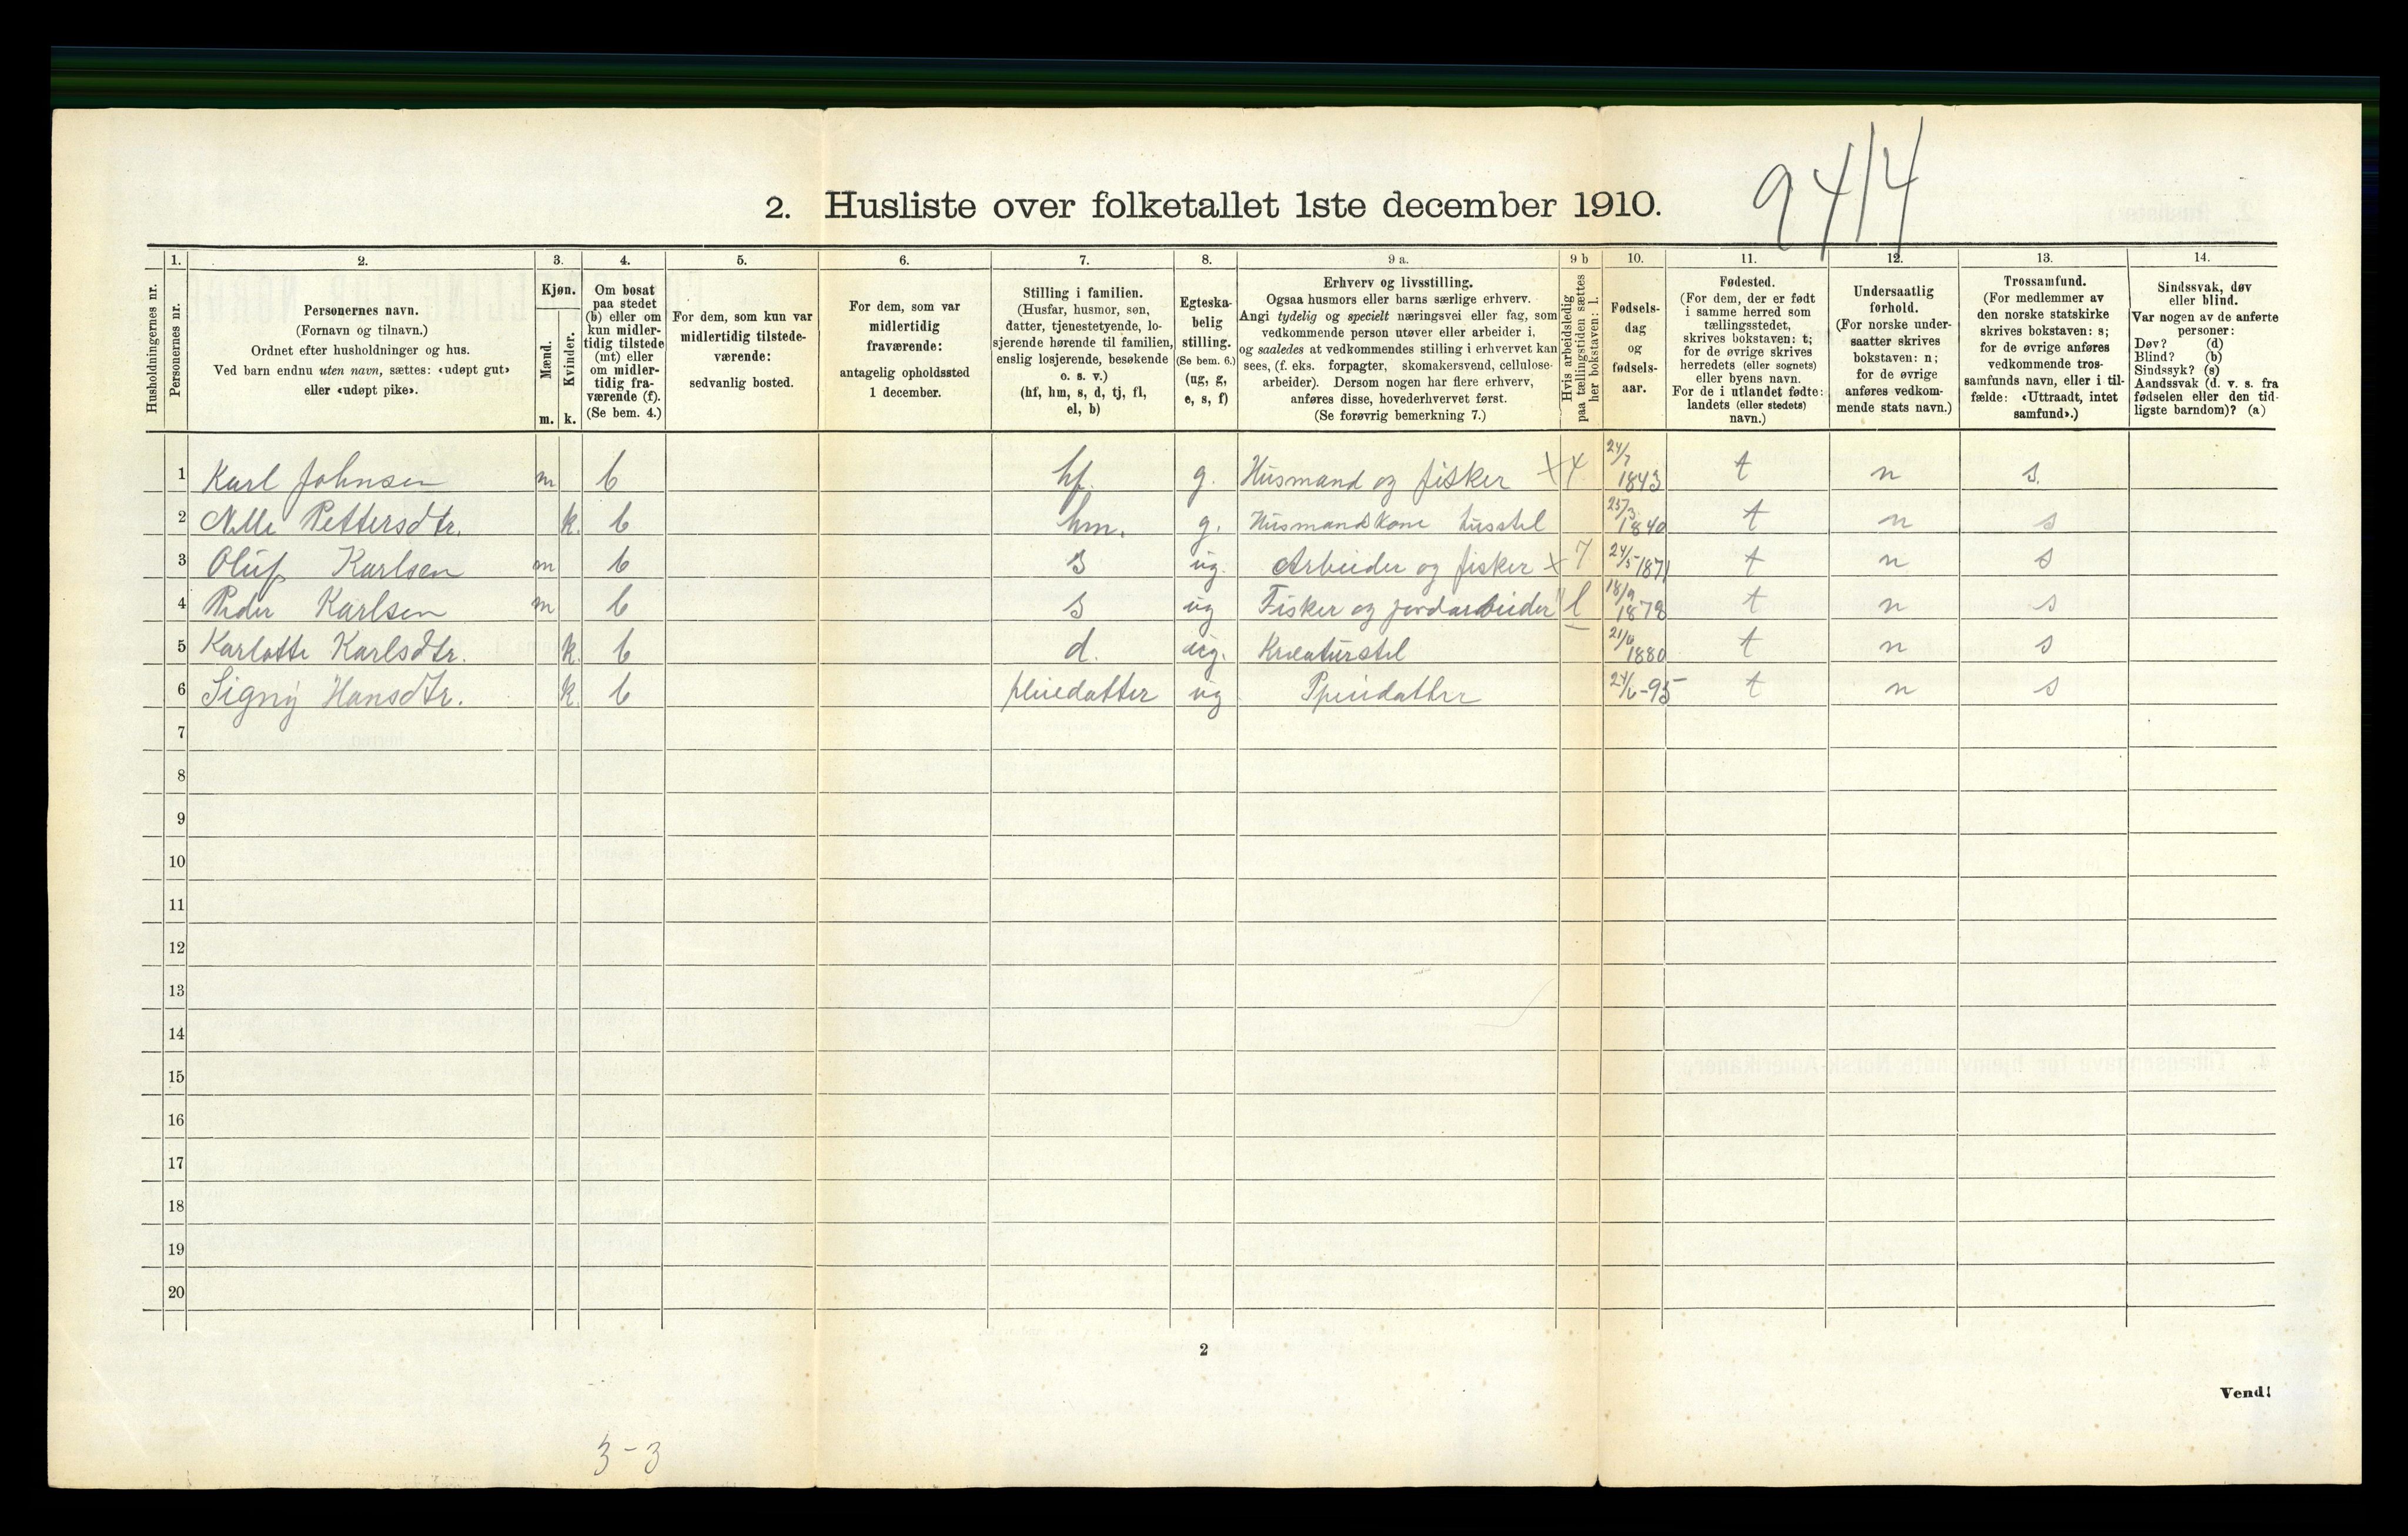 9414
2. Husliste over folketallet 1ste december 1910.
Husholdningernes nr.
1. Personernes nr.
2. Personernes navn.
(Fornavn og tilnavn.)
Ordnet efter husholdninger og hus.
Ved barn endnu uten navn, sættes: «udøpt gut»
eller «udøpt pike».
3. Kjøn.
Mænd. m.
Kvinder. k.
4. Om bosat
paa stedet
(b) eller om
kun midler-
tidig tilstede
(mt) eller
om midler-
tidig fra-
værende (f).
(Se bem. 4.)
5. For dem, som kun var
midlertidig tilstede-
værende:
sedvanlig bosted.
6. For dem, som var
midlertidig
fraværende:
antagelig opholdssted
1 december.
7. Stilling i familien.
(Husfar, husmor, søn,
datter, tjenestetyende, lo-
sjerende hørende til familien,
enslig losjerende, besøkende
o. s. v.)
(hf, hm, s, d, tj, fl,
el, b)
8. Egteska-
belig
stilling.
(Se bem. 6.)
(ug, g,
e, s, f)
9 a. Erhverv og livsstilling.
Ogsaa husmors eller barns særlige erhverv.
Angi tydelig og specielt næringsvei eller fag, som
vedkommende person utøver eller arbeider i,
og saaledes at vedkommendes stilling i erhvervet kan
sees, (f. eks. forpagter, skomakersvend, cellulose-
arbeider). Dersom nogen har flere erhverv,
anføres disse, hovederhvervet først.
(Se forøvrig bemerkning 7.)
9 b Hvis arbeidsledig
paa tællingstiden sættes
her bokstaven: l.
10. Fødsels-
dag
og
fødsels-
aar.
11. Fødested.
(For dem, der er født
i samme herred som
tællingsstedet,
skrives bokstaven: t;
for de øvrige skrives
herredets (eller sognets)
eller byens navn.
For de i utlandet fødte:
landets (eller stedets)
navn.)
12. Undersaatlig
forhold.
(For norske under-
saatter skrives
bokstaven: n;
for de øvrige
anføres vedkom-
mende stats navn.)
13. Trossamfund.
(For medlemmer av
den norske statskirke
skrives bokstaven: s;
for de øvrige anføres
vedkommende tros-
samfunds navn, eller i til-
fælde: «Uttraadt, intet
samfund».)
14. Sindssvak, døv
eller blind.
Var nogen av de anførte
personer:
Døv? (d)
Blind? (b)
Sindssyk? (s)
Aandssvak (d. v. s. fra
fødselen eller den tid-
ligste barndom)? (a)
1 Karl Johnsen m b hf. g. Husmand og fisker X 4 24/7 1843 t n s.
2 Pettersdtr. k. b hm. g. Husmandskone husstel 25/3 1840 t n s
3 Oluf Karlsen m b s ug. Arbeider og fisker X 7 24/5 1871 t n s
4 Peder Karlsen m b s ug Fisker og jordarbeider l 18/9 1878 t n s
5 Karlotte Karlsdtr. k. b d. ug. Kreaturstel 1880 t n s
6 Signy Hansdtr. k. b pleiedatter ug 24/6-95 t n s
7
8
9
10
11
12
13
14
15
16
17
18
19
20
2
Vend!
3-3